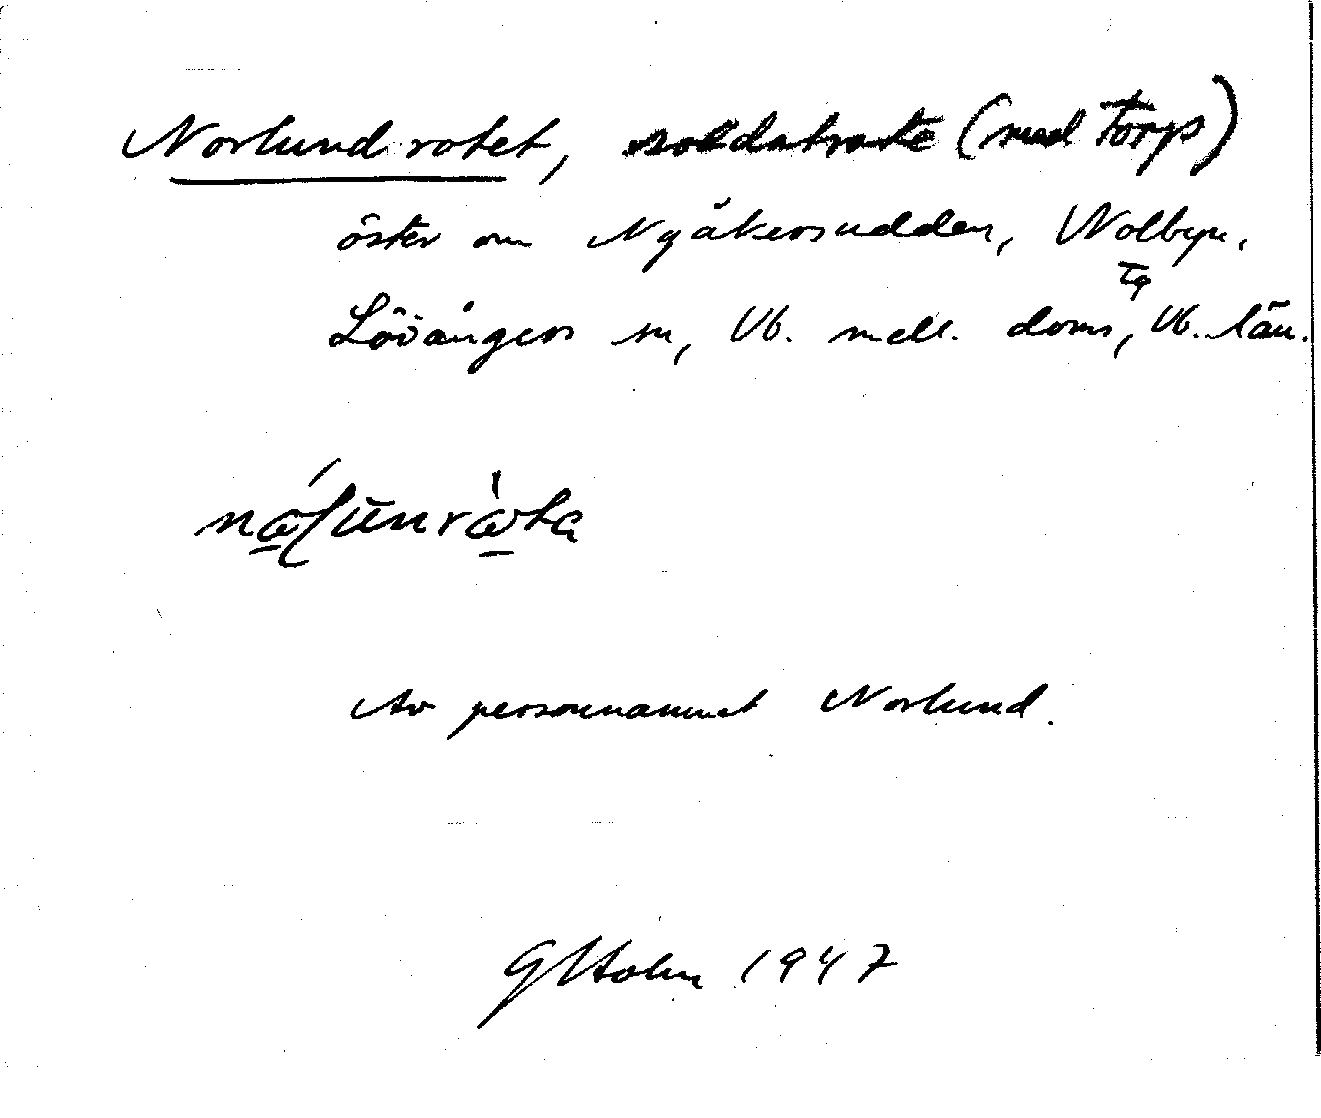 Norlundrotet, soldatrote (med torp)
öster om Nyåkersudden, Nolbyn,
Lövångers sn, Vb. mell. doms, Vb. län.
tg
Av personnamnet Norlund.
GHolm 1947